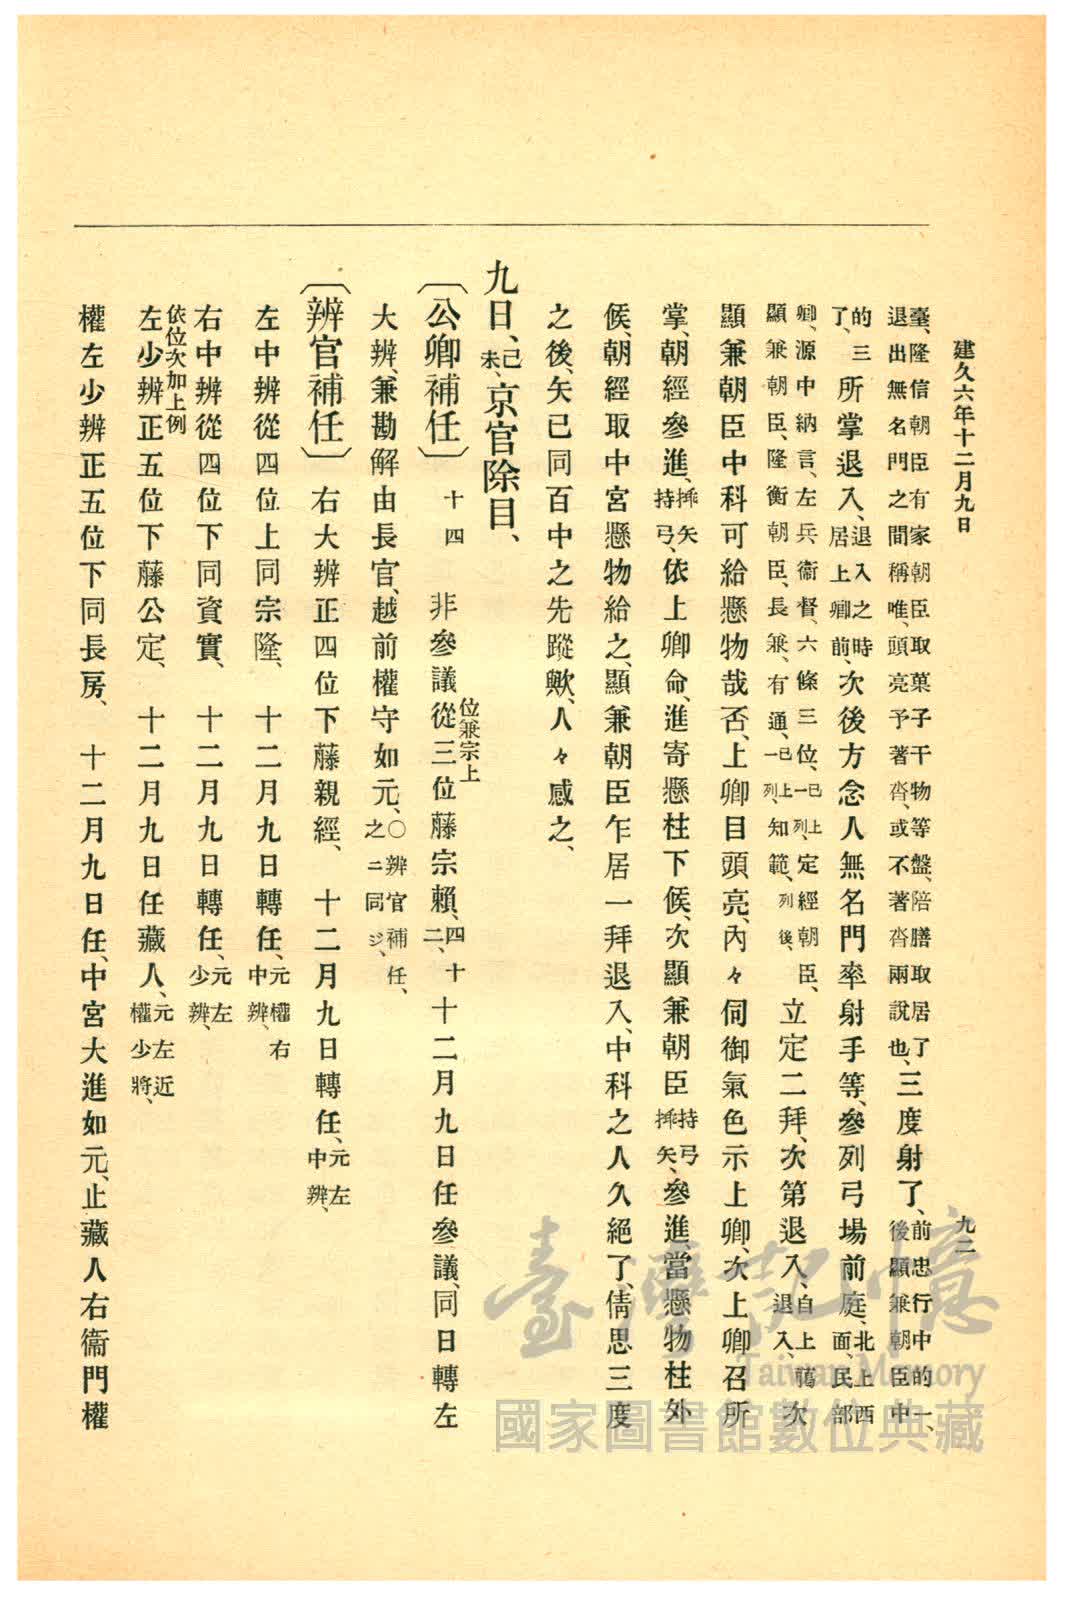 建久六年十二月九日
九二
臺、隆信朝臣有家朝臣取菓子干物等盤、陪膳取居了、
退出無名門之間稱唯、頭亮予著沓、或不著沓兩說也、三度射了、前忠行中的一、
後顯兼朝臣中
的三
了、所掌退入、退入之時
居上卿前、次後方念人無名門率射手等、參列弓場前庭、北上西
面、民部
卿、源中納言、左兵衞督、六條三位、已上
一列、定經朝臣、
顯兼朝臣、隆衡朝臣、長兼、有通、已上
一列、知範、列後、立定二拜、次第退入、自上﨟
退入、次
顯兼朝臣中科可給懸物哉否、上卿目頭亮、內々伺御氣色示上卿、次上卿召所
掌、朝經參進、插矢
持弓、依上卿命、進寄懸柱下候、次顯兼朝臣持弓
插矢、參進、當懸物柱外
候、朝經取中宮懸物給之、顯兼朝臣乍居一拜退入、中科之人久絕了、倩思三度
之後、矢已同百中之先蹤歟、人々感之、
九日、己
未、京官除目、
〔公卿補任〕十四 非參議從三位藤宗賴、四十
二、十二月九日任參議、同日轉左
位兼宗上
大辨、兼勘解由長官、越前權守如元、○辨官補任、
之ニ同ジ、
〔辨官補任〕右大辨正四位下藤親經、十二月九日轉任、元左
中辨、
左中辨從四位上同宗隆、十二月九日轉任、元權右
中辨、
右中辨從四位下同資實、十二月九日轉任、元左
少辨、
依位次加上例
左少辨正五位下藤公定、十二月九日任藏人、元左近
權少將、
權左少辨正五位下同長房、十二月九日任、中宮大進如元、止藏人右衞門權
臺灣記憶
Taiwan Memory
國家圖書館數位典藏